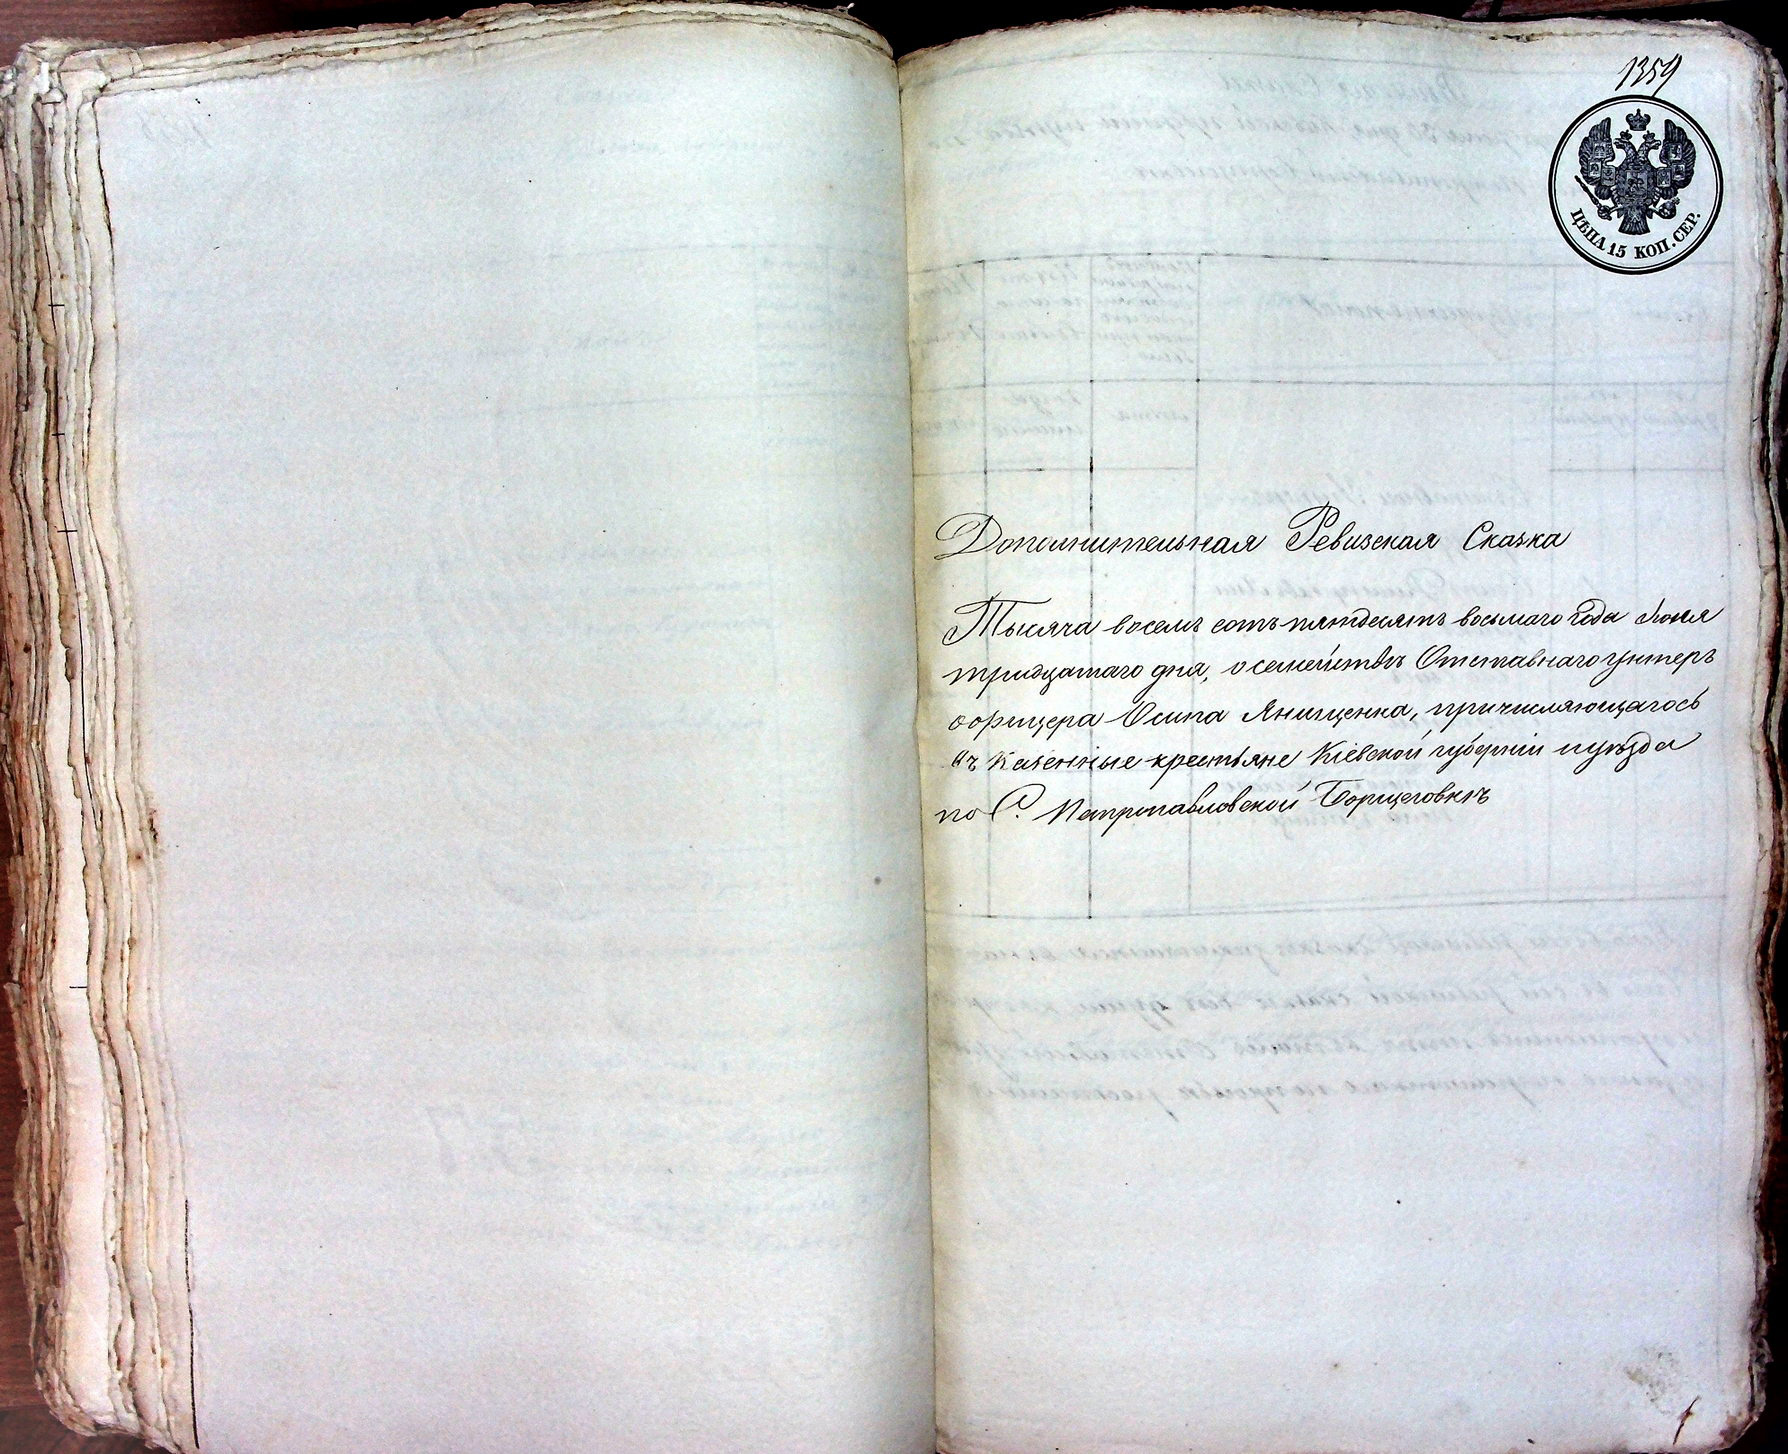 1359
ЦѢНА 15 КОП. СЕР.
Дополнительная Ревизская Сказка
Тысяча восемь сотъ пятдесятъ восьмаго года Іюня
тридцатаго дня, о семействѣ Отставнаго унтеръ
офицера Осипа Янищенка, причисляющагось
въ казенные крестьяне Кіевской губерніи и уѣзда
по С. Петропавловской Борщеговкѣ